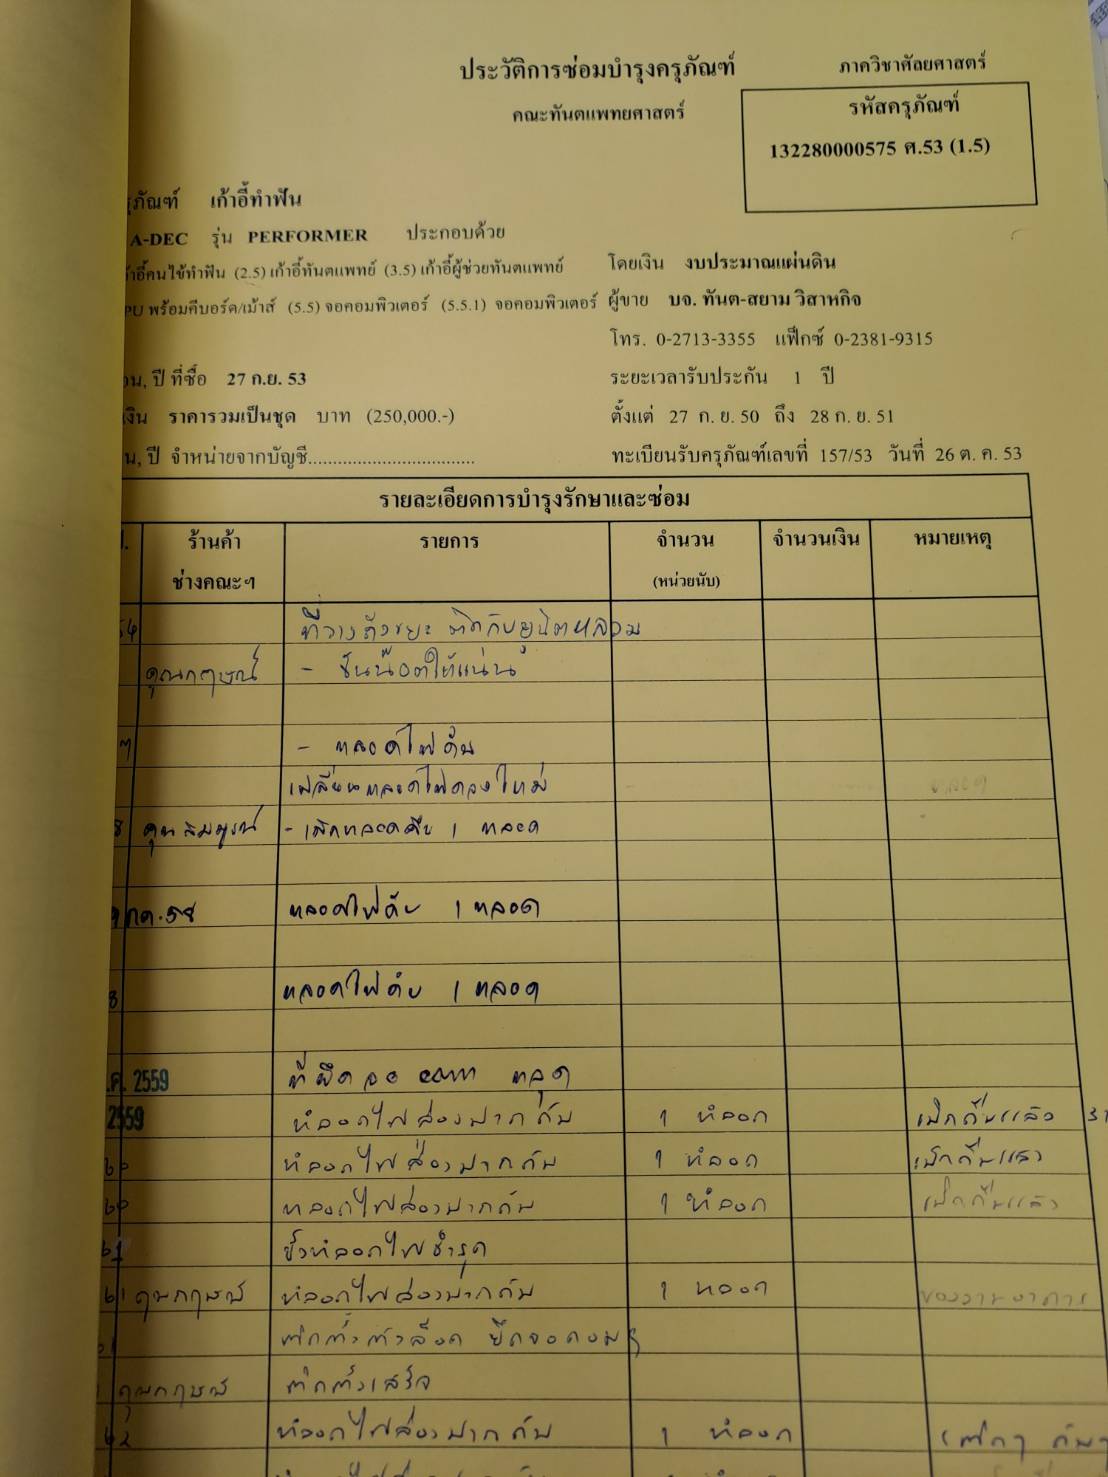 ประวัติการซ่อมบำรุงครุภัณฑ์ ภาควิชาศัลยศาสตร์
คณะทันตแพทยศาสตร์ รหัสครุภัณฑ์
132280000575 ศ.53 (1.5)
รุภัณฑ์ เก้าอี้ทำฟัน
A-DEC รุ่น PERFORMER ประกอบด้วย
ก้าอี้คนไข้ทำฟัน (2.5) เก้าอี้ทันตแพทย์ (3.5) เก้าอี้ผู้ช่วยทันตแพทย์ โดยเงิน งบประมาณแผ่นดิน
PU พร้อมคีบอร์ด/เม้าส์ (5.5) จอคอมพิวเตอร์ (5.5.1) จอคอมพิวเตอร์ ผู้ขาย บจ. ทันต-สยาม วิสาหกิจ
โทร. 0-2713-3355 แฟ็กซ์ 0-2381-9315
อน, ปี ที่ซื้อ 27 ก.ย. 53 ระยะเวลารับประกัน 1 ปี
งิน ราคารวมเป็นชุด บาท (250,000.-) ตั้งแต่ 27 ก. ย. 50 ถึง 28 ก. ย. 51
น, ปี จำหน่ายจากบัญชี................................. ทะเบียนรับครุภัณฑ์เลขที่ 157/53 วันที่ 26 ต. ค. 53
รายละเอียดการบำรุงรักษาและซ่อม
ป. ร้านค้า รายการ จำนวน จำนวนเงิน หมายเหตุ
ช่างคณะฯ (หน่วยนับ)
54 ที่วางถังขยะ ติดกับยูนิตหลวม
คุณกฤษณ์ - ขันน๊อตให้แน่น
- หลอดไฟดับ
เปลี่ยนหลอดไฟดวงใหม่
8 - เบิกหลอดดับ 1 หลอด
ก.ค. 58 หลอดไฟดับ 1 หลอด
8 หลอดไฟดับ 1 หลอด
.ค. 2559 ที่ยึดจอ com หลุด
2559 หลอดไฟส่องปากดับ 1 หลอด เบิกคืนแล้ว
60 หลอดไฟส่องปากดับ 1 หลอด เบิกคืนแล้ว
60 หลอดไฟส่องปากดับ 1 หลอด เบิกคืนแล้ว
61 ขั้วหลอดไฟชำรุด
61 คุณกฤษณ์ หลอดไฟส่องปากดับ 1 หลอด ของงานอาคาร
61 ติดตั้งตัวล็อค ยึดจอคอมฯ
คุณกฤษณ์ ติดตั้งเสร็จ
62 หลอดไฟส่องปากดับ 1 หลอด